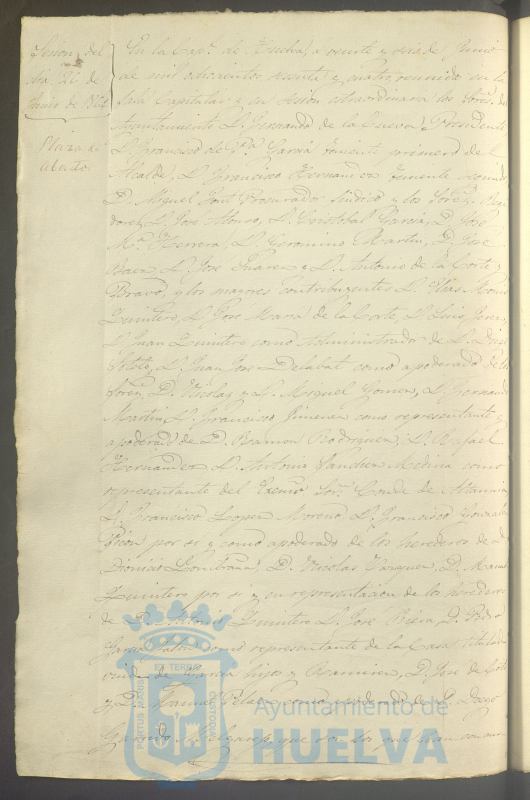 Sesion del
dia 22 de
Junio de 1864
Plaza de
abastos
En la Capl. de Huelva, á veinte y dos de Junio
de mil ochocientos sesenta y cuatro, reunido en la
Sala Capitular y en sesion estraordinaria los Sores. del
Ayuntamiento D. Fernando de la Cueva, Presidente
D. Francisco de P. Garcia teniente primero de
Alcalde, D. Francisco Hernandez teniente segundo
D. Miguel Procurador Sindico y los Sores. Regi
dores, D. Jose Alonso, D. Cristobal Garcia, D. José
Mª Herrera, D. Geronimo Martin, D. Jose
Baez, D. José Suarez y D. Antonio de la Corte y
Bravo, y los mayores contribuyentes D.
Quintero, D. Jose Maria de la Corte, D. Luis
D. Juan Quintero como Administrador de D. Diego
Soto, D. Juan Jose Delabat como apoderado de los
Sores. D. Nicolas y D. Miguel Gomez, D. Fernando
Martin, D. Francisco Jimenez como representante y
apoderado de D. Ramon Rodriguez, D. Rafael
Hernandez D. Antonio Sanchez Medina como
representante del Excmo. Sor. Conde de Altamira
D. Francisco Lopez Moreno, D. Francisco Gonzalez
por si y como apoderado de los herederos de D.
Dionicio D. Nicolas Vazquez, D. Manuel
Quintero por si y en representacion de los herederos
de D. Antonio Quintero D. Jose D. Pedro
Garcia como representante de la Casa titulada
viuda de Garcia hijos y Ramirez, D. Jose de
y D. Manuel como apoderado de D. Diego
Garrido que son los que
PORTUS MARIS ET TERRAE CUSTODIA
Ayuntamiento de
HUELVA